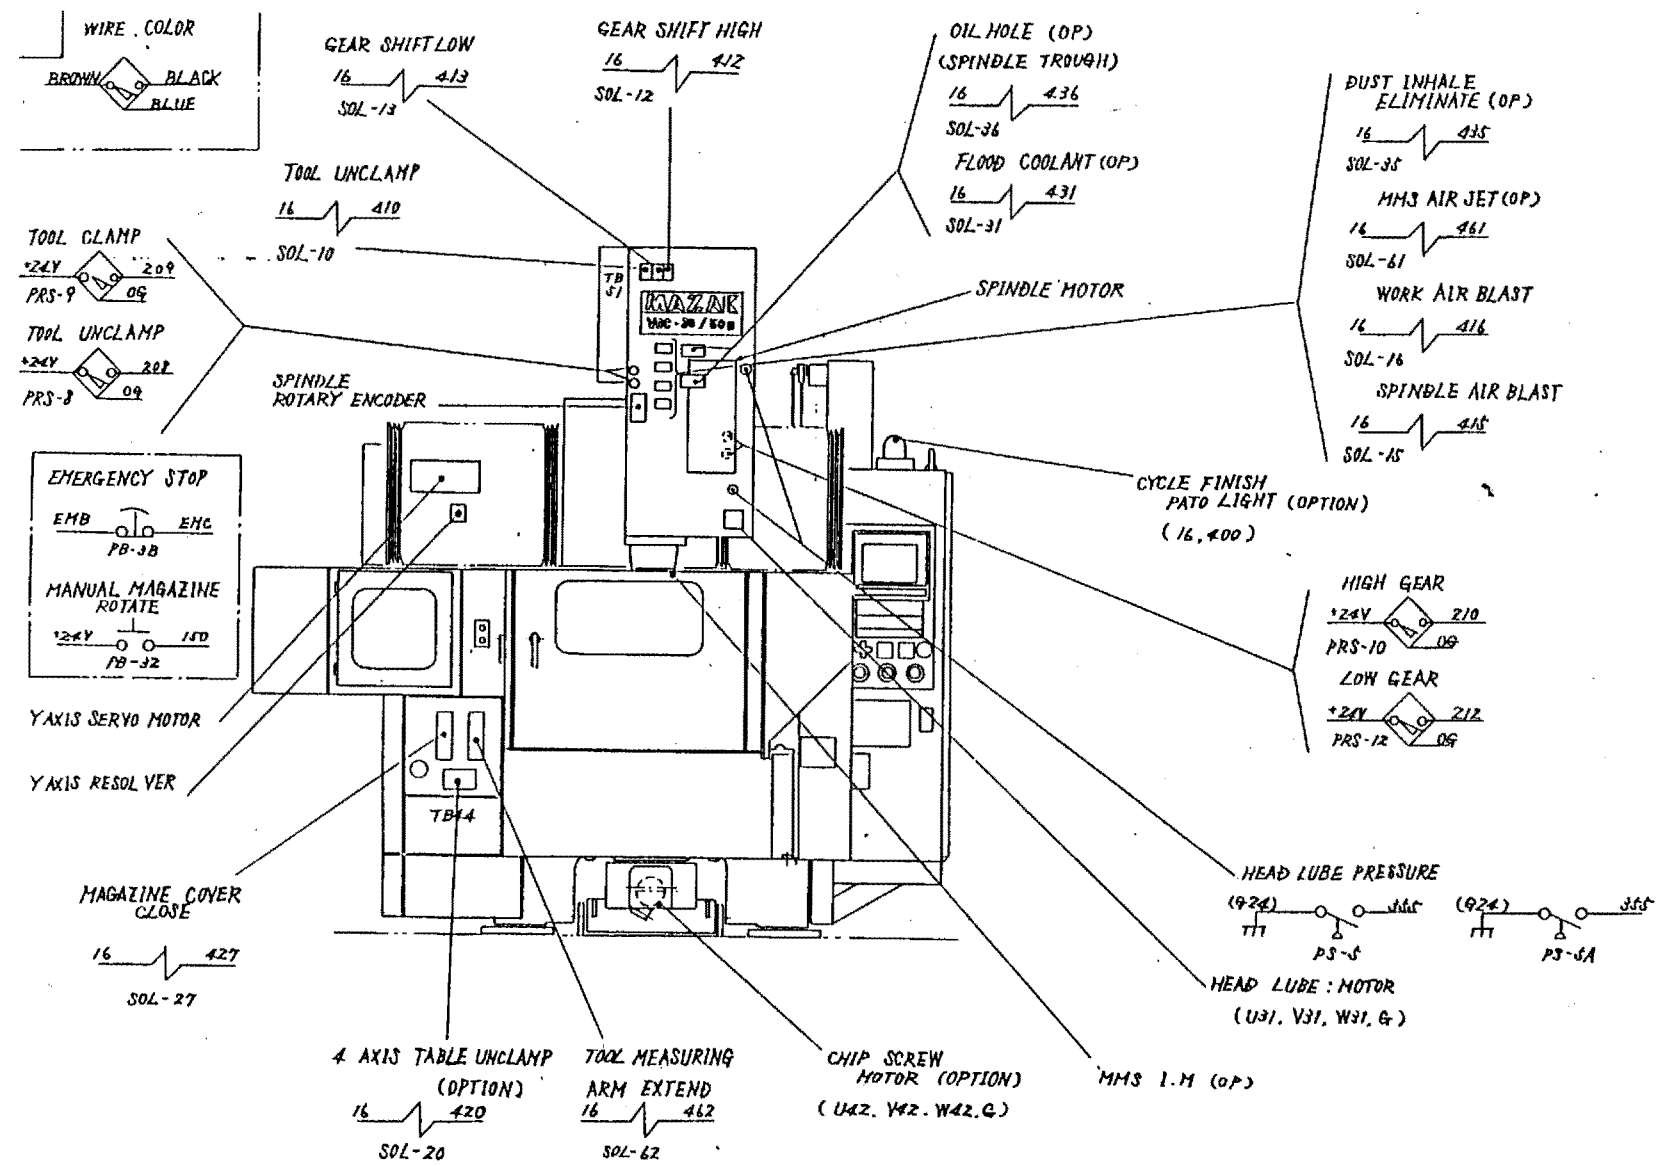 WIRE . COLOR
BROWN
BLACK
BLUE
GEAR SHIFT LOW
16 413
SOL-13
GEAR SHIFT HIGH
16 412
SOL-12
OIL HOLE (OP)
(SPINDLE TROUGH)
16 436
SOL-36
FLOOD COOLANT (OP)
16 431
SOL-31
DUST INHALE
ELIMINATE (OP)
16 435
SOL-35
MMS AIR JET (OP)
16 461
SOL-61
WORK AIR BLAST
16 416
SOL-16
SPINDLE AIR BLAST
16 415
SOL-15
TOOL UNCLAMP
16 410
SOL-10
TOOL CLAMP
+24V 209
PRS-9 0G
TOOL UNCLAMP
+24V 208
PRS-8 0G
TB
51
MAZAK
SPINDLE MOTOR
SPINDLE
ROTARY ENCODER
EMERGENCY STOP
EMB EMC
PB-3B
MANUAL MAGAZINE
ROTATE
+24V 150
PB-32
CYCLE FINISH
PATO LIGHT (OPTION)
(16,400)
HIGH GEAR
+24V 210
PRS-10 0G
LOW GEAR
+24V 212
PRS-12 0G
Y AXIS SERVO MOTOR
Y AXIS RESOLVER
TB44
MAGAZINE COVER
CLOSE
16 427
SOL-27
HEAD LUBE PRESSURE
(G24) 355
PS-5
(G24) 355
PS-5A
HEAD LUBE : MOTOR
(U31, V31, W31, G)
4 AXIS TABLE UNCLAMP
(OPTION)
16 420
SOL-20
TOOL MEASURING
ARM EXTEND
16 462
SOL-62
CHIP SCREW
MOTOR (OPTION)
(U42. V42. W42. G)
MMS I.M (OP)